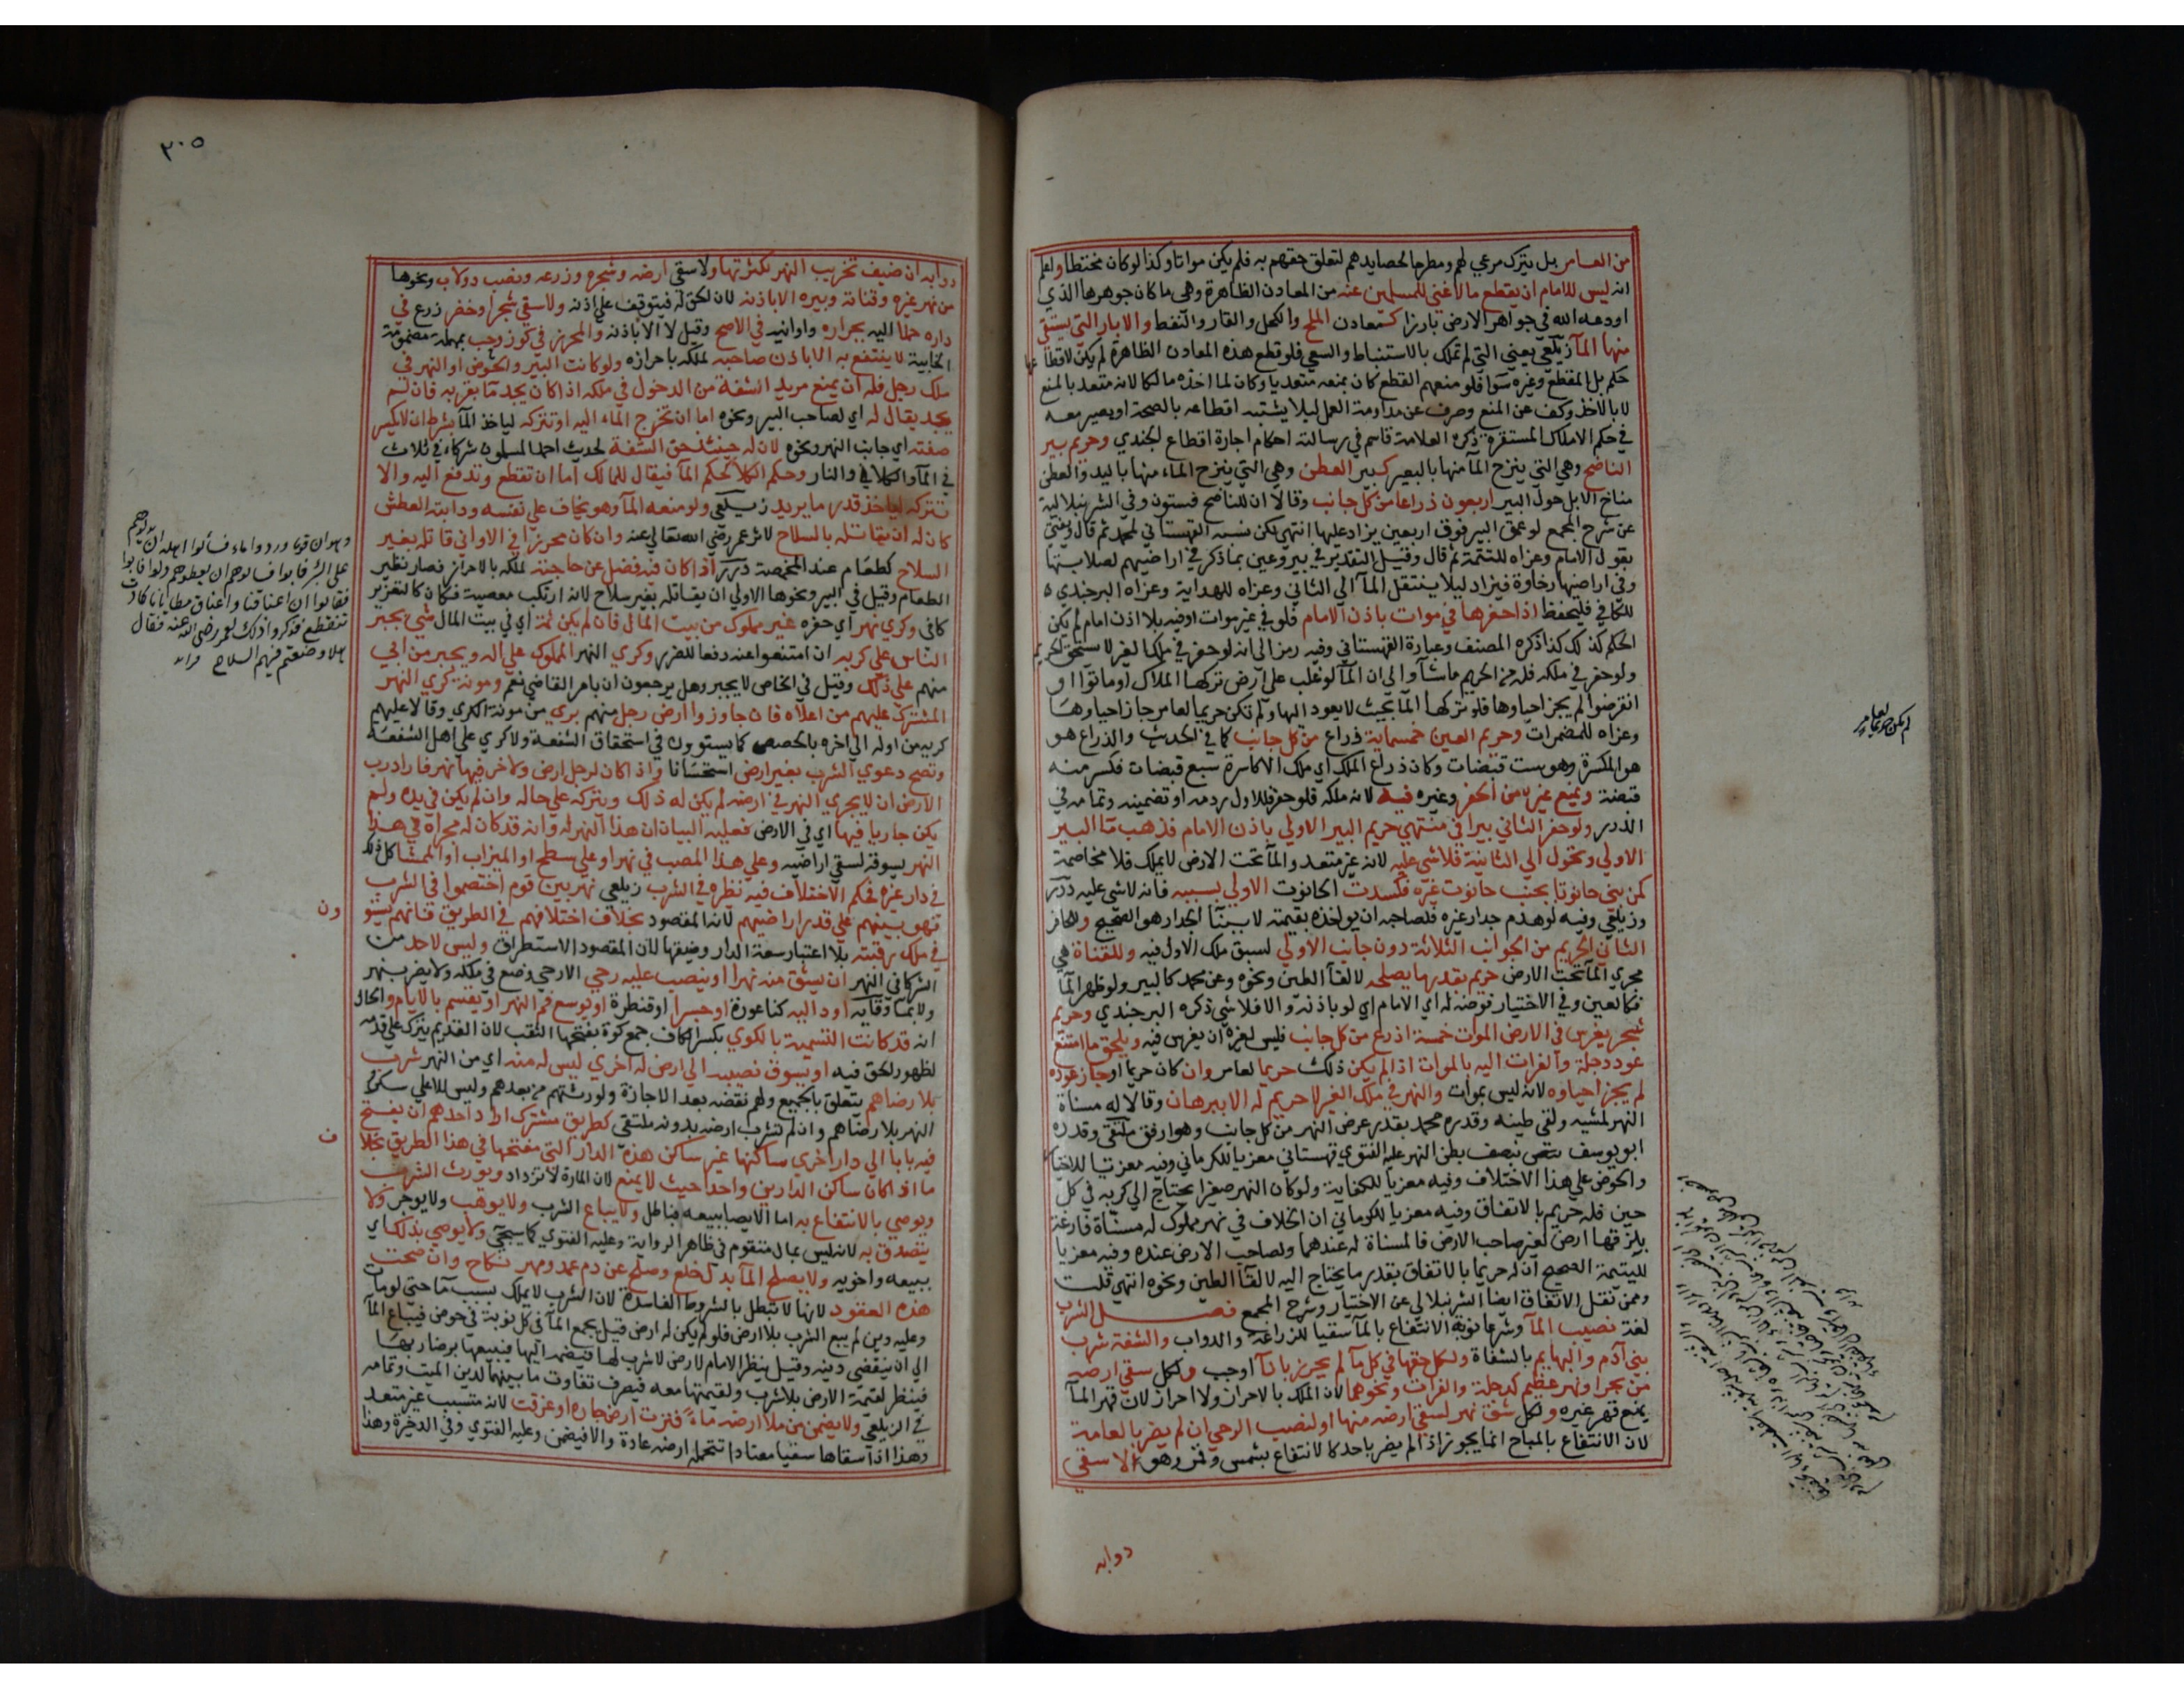 من العامر بل يترك مرعي لهم ومطرحا لحصايدهم لتعلق حقهم به فلم يكن مواتا وكذا لو كان محتطبا واعلم
انه ليس للامام ان يقطع ما لا غني للمسلمين عنه من المعادن الظاهرة وهي ما كان جوهرها الذي
اودعه الله في جواهر الارض بارزا كمعادن الملح والكحل والقار والنفط والابار التي يستقي
منها المآ زيلعي يعني التي لم تملك بالاستنباط والسعي فلو قطع هذه المعادن الظاهرة لم يكن لاقطاعها
حكم بل المقطع وغيره سوا فلو منعهم القطع كان بمنعه متعديا وكان لما اخذه مالكا لانه متعد بالمنع
لا بالاخذ وكف عن المنع وصرف عن مداومة العمل ليلا يشتبه اقطاعه بالصحة او يصير معه
في حكم الاملاك المستقرة ذكره العلامة قاسم في رسالته احكام اجارة اقطاع الجندي وحريم بير
الناضح وهي التي ينزح المآ منها بالبعير كبير العطن وهي التي ينزح الماء منها باليد والعطن
مناخ الابل حول البير اربعون ذراعا من كل جانب وقالا ان للناضح فستون وفي الشرنبلالية
عن شرح المجمع لو عمق البير فوق اربعين يزاد عليها انتهي لكن نسبه القهستاني لمحمد ثم قال ويفتي
بقول الامام وعزاه للتتمة ثم قال وقيل التقدير في بير وعين بما ذكر في اراضيهم لصلابتها
وفي اراضينا رخاوة فيزاد ليلا ينتقل المآ الي الثاني وعزاه للهداية وعزاه البرجندي
للكافي فليحفظ اذا حفرها في موات باذن الامام فلو في غير موات او فيه بلا اذن امام لم يكن
الحكم كذلك كذا ذكره المصنف وعبارة القهستاني وفيه رمز الي انه لو حفر في ملك الغير لا يستحق الحريم
ولو حفر في ملكه فله من الحريم ما شآ والي ان المآ لو غلب علي ارض تركها الملاك او ماتوا او
انقرضوا لم يجز احياوها فلو تركها المآ بحيث لا يعود اليها ولم تكن حريما لعامر جاز احياوها
وعزاه للمضمرات وحريم العين خمسماية ذراع من كل جانب كما في الحديث والذراع هو
هو المكسرة وهو ست قبضات وكان ذراع الملك اي ملك الاكاسرة سبع قبضات فكسر منه
قبضة ويمنع غيره من الحفر وغيره فيه لانه ملكه فلو حفر فللاول ردمه او تضمينه وتمامه في
الدرر ولو حفر الثاني بيرا في منتهي حريم البير الاولي باذن الامام فذهب مآ البير
الاولي وتحول الي الثانية فلا شي عليه لانه غير متعد والمآ تحت الارض لا يملك فلا مخاصمة
كمن بني حانوتا بجنب حانوت غيره فكسدت الحانوت الاولي بسببه فانه لا شي عليه درر
وزيلعي وفيه لو هدم جدار غيره فلصاحبه ان يواخذه بقيمته لا ببنآ الجدار هو الصحيح وللحافر
الثاني الحريم من الجوانب الثلاثة دون جانب الاولي لسبق ملك الاول فيه وللقناة هي
مجري المآ تحت الارض حريم بقدر ما يصلحه لالقآ الطين ونحوه وعن محمد كالبير ولو ظهر المآ
فكالعين وفي الاختيار فوضه له اي الامام اي لو باذنه والا فلا شي ذكره البرجندي وحريم
شجر يغرس في الارض الموات خمسة اذرع من كل جانب فليس لغيره ان يغرس فيه ويلحق ما امتنع
عود دجلة والفرات اليه بالموات اذا لم يكن ذلك حريما لعامر وان كان حريما او جاز عوده
لم يجز احياوه لانه ليس بموات والنهر في ملك الغير لا حريم له الا ببرهان وقالا له مسناة
النهر لمشيه ولقي طينه وقدره محمد بقدر عرض النهر من كل جانب وهو ارفق ملتقي وقدره
ابو يوسف بنصف بطن النهر عليه الفتوي قهستاني معزيا للكرماني وفيه معزيا للاختيار
والحوض علي هذا الاختلاف وفيه معزيا للكفاية ولو كان النهر صغيرا يحتاج الي كريه في كل
حين فله حريم بالاتفاق وفيه معزيا للكرماني ان الخلاف في نهر مملوك له مسناة فارغة
يلزقها ارض لغير صاحب الارض فالمسناة له عندهما ولصاحب الارض عنده وفيه معزيا
لليتيمة الصحيح ان له حريما بالاتفاق بقدر ما يحتاج اليه لالقآ الطين ونحوه انتهي قلت
وممن نقل الاتفاق ايضا الشرنبلالي عن الاختيار وشرح المجمع فصل الشرب
لغة نصيب المآ وشرعا نوبة الانتفاع بالمآ سقيا للزراعة والدواب والشفة شرب
بني آدم والبهايم بالشفاة ولكل حقها في كل مآ لم يحرز باناآ او جب ولكل سقي ارضه
من بحر او نهر عظيم كدجلة والفرات ونحوهما لان الملك بالاحراز ولا احراز لان قهر المآ
يمنع قهر غيره ولكل شق نهر لسقي ارضه منها او لنصب الرحي ان لم يضر بالعامة
لان الانتفاع بالمباح انما يجوز اذا لم يضر باحد كالانتفاع بشمس وقمر وهو الا سقي
دوابه
لم يكن حريما لعامر
٣٠٥
دوابه ان ضيف تخريب النهر لكثرتها ولا سقي ارضه وشجره وزرعه ونصب دولاب ونحوها
من نهر غيره وقناته وبيره الا باذنه لان الحق له فيتوقف علي اذنه ولا سقي شجر او خضر زرع في
داره حملا اليه بجراره واوانيه في الاصح وقيل لا الا باذنه والمحرز في كوز وحب بمهملة مضمومة
الخابية لا ينتفع به الا باذن صاحبه لملكه باحرازه ولو كانت البير والحوض او النهر في
ملك رجل فله ان يمنع مريد الشفة من الدخول في ملكه اذا كان يجد مآ بقربه فان لم
يجد يقال له اي لصاحب البير ونحوه اما ان تخرج الماء اليه او تتركه لياخذ المآ بشرط ان لا يكسر
ضفته اي جانب النهر ونحوه لان له حينئذ حق الشفة لحديث احمد المسلمون شركاء في ثلاث
في المآ والكلا والنار وحكم الكلا كحكم المآ فيقال للمالك اما ان تقطع وتدفع اليه والا
تتركه لياخذ قدر ما يريد زيلعي ولو منعه المآ وهو يخاف علي نفسه ودابته العطش
كان له ان يقاتله بالسلاح لاثر عمر رضي الله تعالي عنه وان كان محرزا في الاواني قاتله بغير
السلاح كطعام عند المخمصة درر اذا كان فيه فضل عن حاجته لملكه بالاحراز فصار نظير
الطعام وقيل في البير ونحوها الاولي ان يقاتله بغير سلاح لانه ارتكب معصية فكان كالتعزير
كافي وكري نهر اي حفره غير مملوك من بيت المال فان لم يكن ثمة اي في بيت المال شي يجبر
الناس علي كريه ان امتنعوا عنه دفعا للضرر وكري النهر المملوك علي اهله ويجبر من ابي
منهم علي ذلك وقيل في الخاص لا يجبر وهل يرجعون ان بامر القاضي نعم ومونة كري النهر
المشترك عليهم من اعلاه فان جاوزوا ارض رجل منهم بري من مونة الكري وقالا عليهم
كريه من اوله الي اخره بالحصص كما يستوون في استحقاق الشفعة ولا كري علي اهل الشفة
وتصح دعوي الشرب بغير ارض استحسانا واذا كان لرجل ارض ولاخر فيها نهر فاراد رب
الارض ان لا يجري النهر في ارضه لم يكن له ذلك ويتركه علي حاله وان لم يكن في يده ولم
يكن جاريا فيها اي في الارض فعليه البيان ان هذا النهر له وانه قد كان له مجراه في هذا
النهر يسوقه لسقي اراضيه وعلي هذا المصب في نهر او علي سطح او الميزاب او الممشا كل ذلك
في دار غيره فحكم الاختلاف فيه نظيره في الشرب زيلعي نهر بين قوم اختصموا في الشرب
فهو بينهم علي قدر اراضيهم لانه المقصود بخلاف اختلافهم في الطريق فانهم يستوون
في ملك رقبته بلا اعتبار سعة الدار وضيقها لان المقصود الاستطراق وليس لاحد من
الشركا في النهر ان يشق منه نهرا او ينصب عليه رحي الا رحي وضع في ملكه ولا يضر بنهر
ولا بمآ وقايه او دالية كناعورة او جسر او قنطرة او يوسع فم النهر او يقسم بالايام والحال
انه قد كانت القسمة بالكوي بكسر الكاف جمع كوة بفتحها الثقب لان القديم يترك علي قدمه
لظهور الحق فيه او يسوق نصيبه الي ارض له اخري ليس له منه اي من النهر شرب
بلا رضاهم يتعلق بالجميع ولهم نقضه بعد الاجازة ولورثتهم من بعدهم وليس للاعلي سكر
النهر بلا رضاهم وان لم تشرب ارضه بدونه ملتقي كطريق مشترك اراد احدهم ان يفتح
فيه بابا الي دار اخري ساكنها غير ساكن هذه الدار التي مفتحها في هذا الطريق بخلاف
ما اذا كان ساكن الدارين واحدا حيث لا يمنع لان المارة لا تزداد ويورث الشرب
ويوصي بالانتفاع به اما الايصا ببيعه فباطل ولا يباع الشرب ولا يوهب ولا يوجر ولا
يتصدق به لانه ليس بمال متقوم في ظاهر الرواية وعليه الفتوي كما سيجي ولا يوصي بذلك اي
ببيعه واخويه ولا يصلح المآ بدل خلع وصلح عن دم عمد ومهر نكاح وان صحت
هذه العقود لانها لا تبطل بالشروط الفاسدة لان الشرب لا يملك بسبب مآ حتي لو مات
وعليه دين لم يبع الشرب بلا ارض فلو لم يكن له ارض قيل يجمع المآ في كل نوبة في حوض فيباع المآ
الي ان ينقضي دينه وقيل ينظر الامام لارض لا شرب لها فيضمه اليها فيبيعها برضا ربها
فينظر لقيمة الارض بلا شرب ولقيمتها معه فيصرف تفاوت ما بينهما لدين الميت وتمامه
في الزيلعي ولا يضمن من ملا ارضه ماء فنزت ارض جاره او غرقت لانه متسبب غير متعد
وهذا اذا سقاها سقيا معتادا تتحمله ارضه عادة والا فيضمن وعليه الفتوي وفي الذخيرة وهذا
وهو ان قوما وردوا ماء فسألوا اهله ان يدلوهم
علي البئر فابوا فسالوهم ان يعطوهم دلوا فابوا
فقالوا ان اعناقنا واعناق مطايانا كادت
تنقطع فذكروا ذلك لعمر رضي الله عنه فقال
هلا وضعتم فيهم السلاح
ون
ف